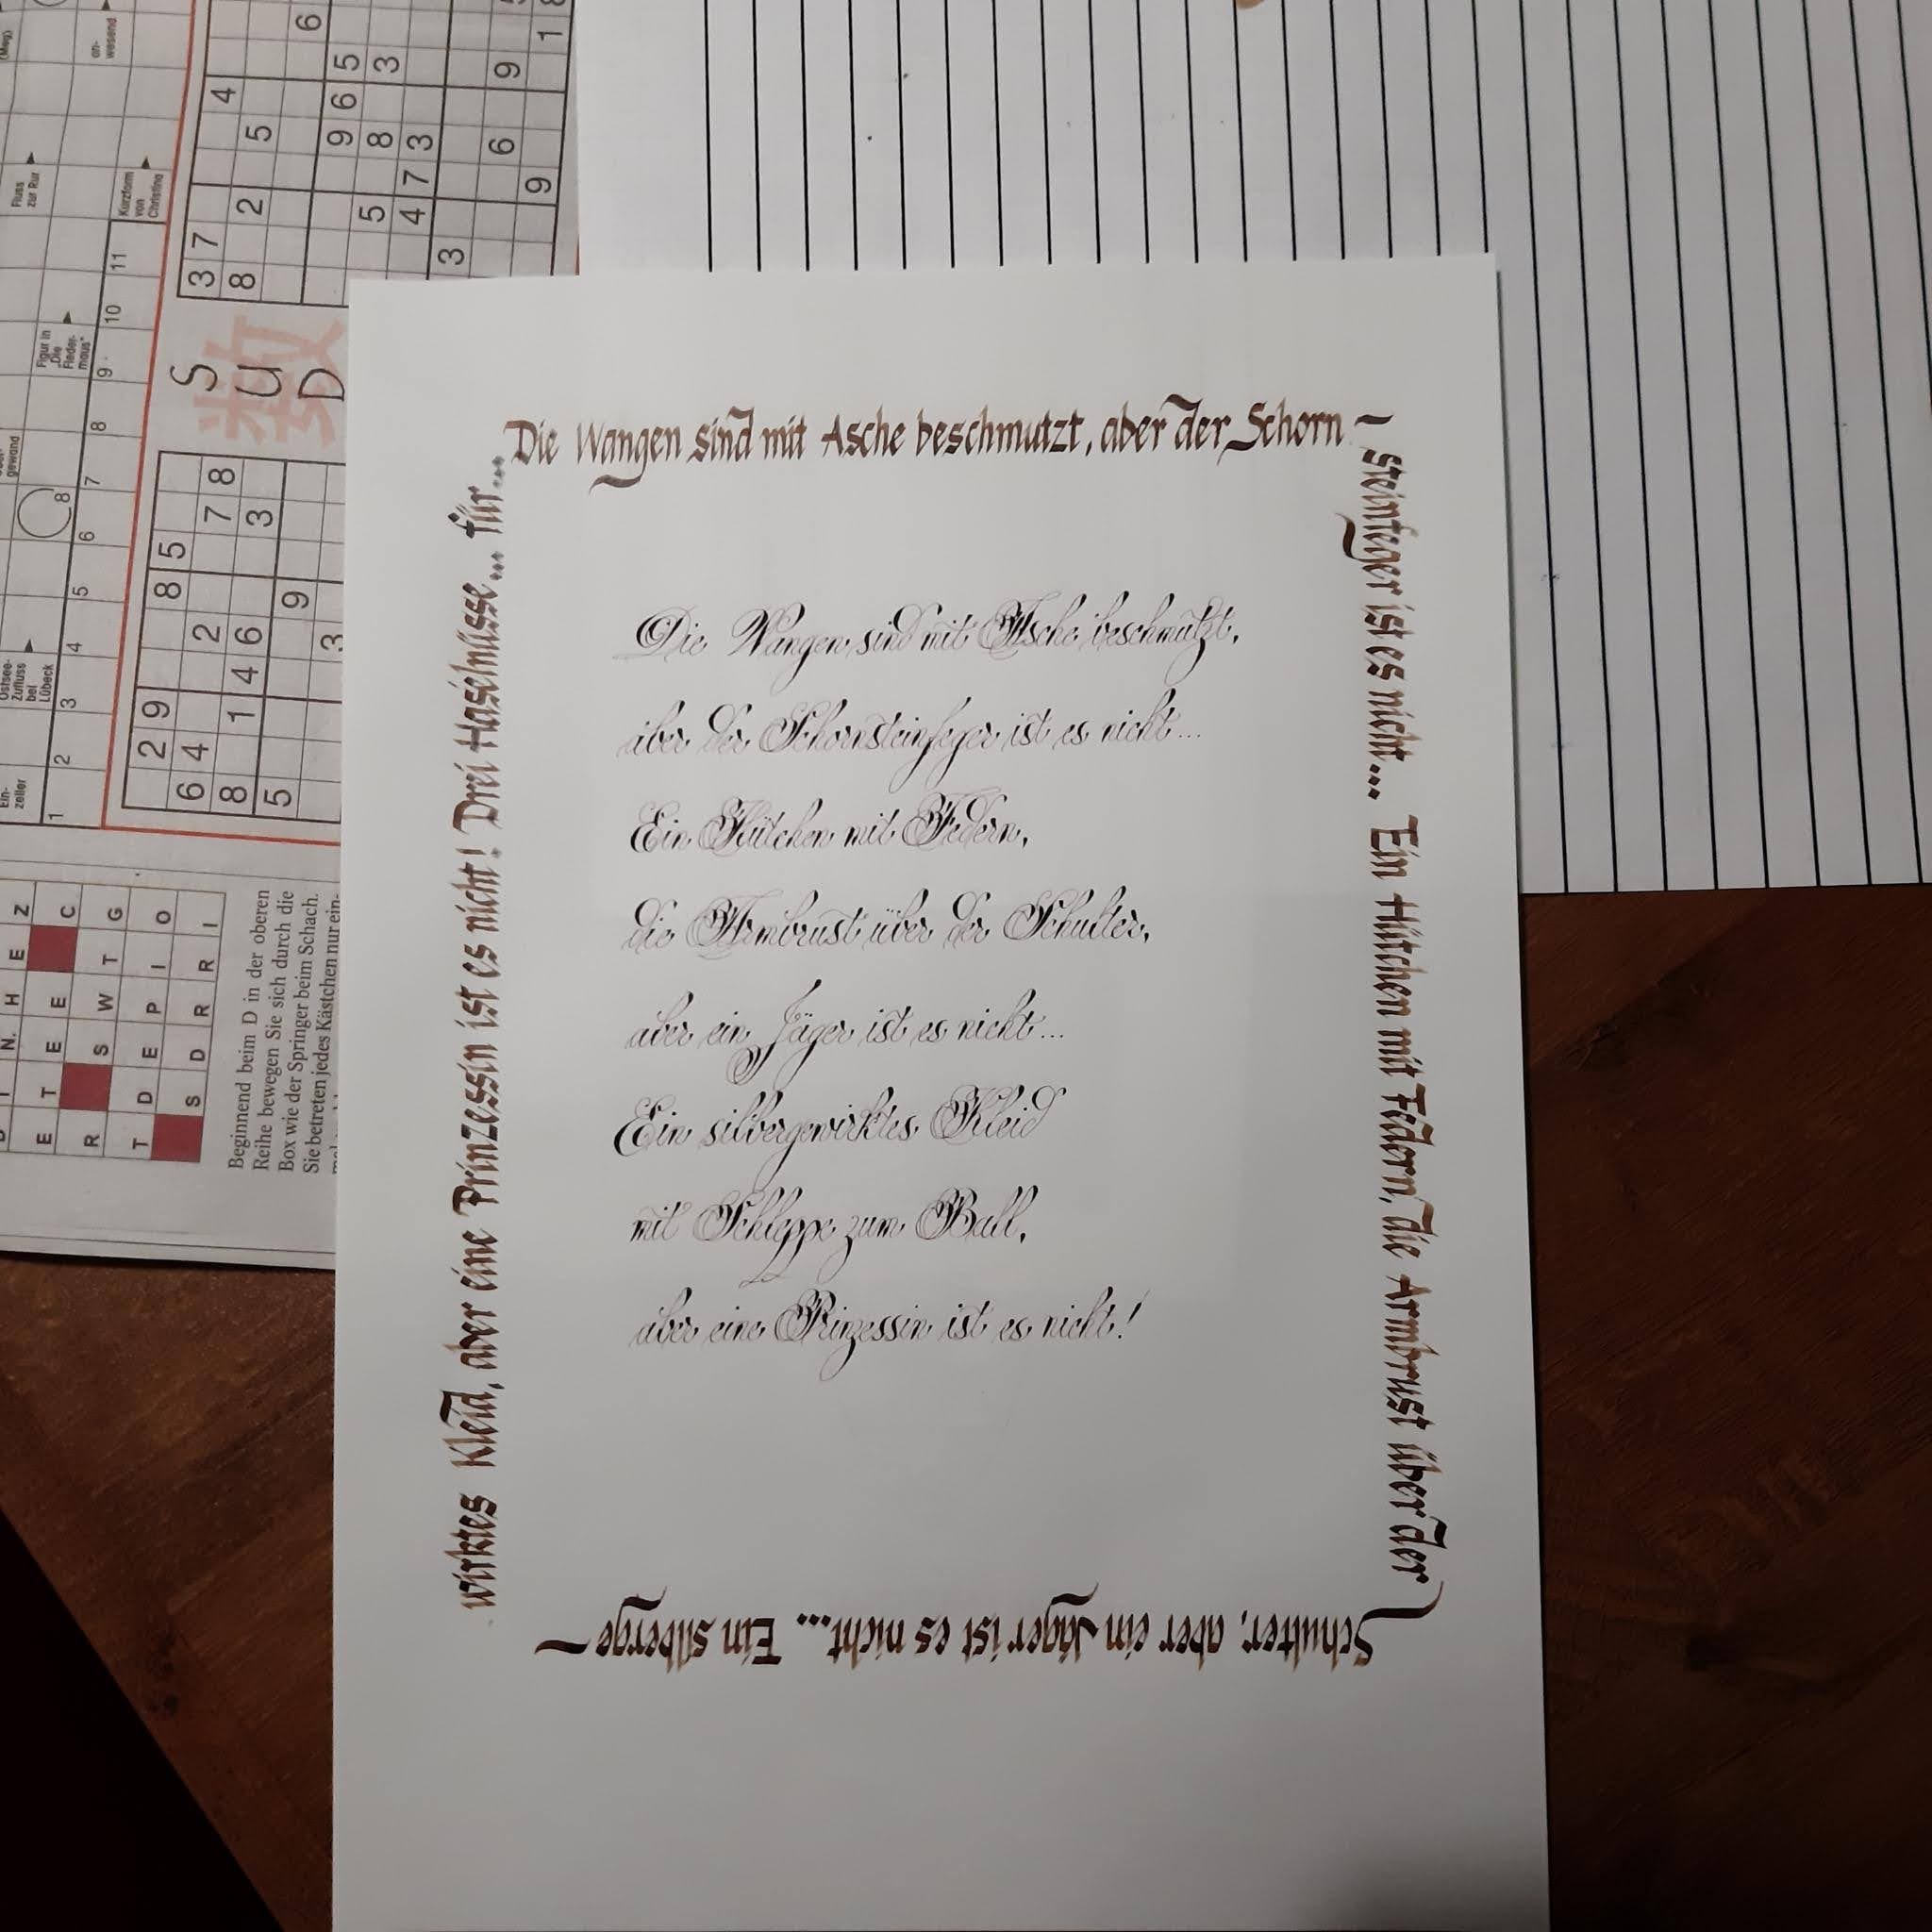 Die Wangen sind mit Asche beschmutzt, aber der Schorn-
steinfeger ist es nicht... Ein Hütchen mit Federn, die Armbrust über der
Schulter, aber ein Jäger ist es nicht... Ein silberge-
wirktes Kleid, aber eine Prinzessin ist es nicht! Drei Haselnüsse... für...
Die Wangen sind mit Asche beschmutzt,
aber der Schornsteinfeger ist es nicht...
Ein Hütchen mit Federn,
die Armbrust über der Schulter,
aber ein Jäger ist es nicht...
Ein silbergewirktes Kleid
mit Schleppe zum Ball,
aber eine Prinzessin ist es nicht!
Ein-
zeller
Ostsee-
Zufluss
bei
Lübeck
gewand
Figur in
"Die
Fleder-
maus"
Fluss
zur Rur
Kurzform
von
Christine
an-
wesend
(Mag)
1 2 3 4 5 6 7 8 9 10 11
8
S
U
D
数
3 7
8 2 5 4
6
9 6 5
5 8 3
4 7 3
3
6 9
9 1
2 9 8 5
6 4 2 7 8
8 1 4 6 3
5 9
3
N H E Z
E T E E C
R S W T G
T D E P I O
S D R R I
Beginnend beim D in der oberen
Reihe bewegen Sie sich durch die
Box wie der Springer beim Schach.
Sie betreten jedes Kästchen nur ein-